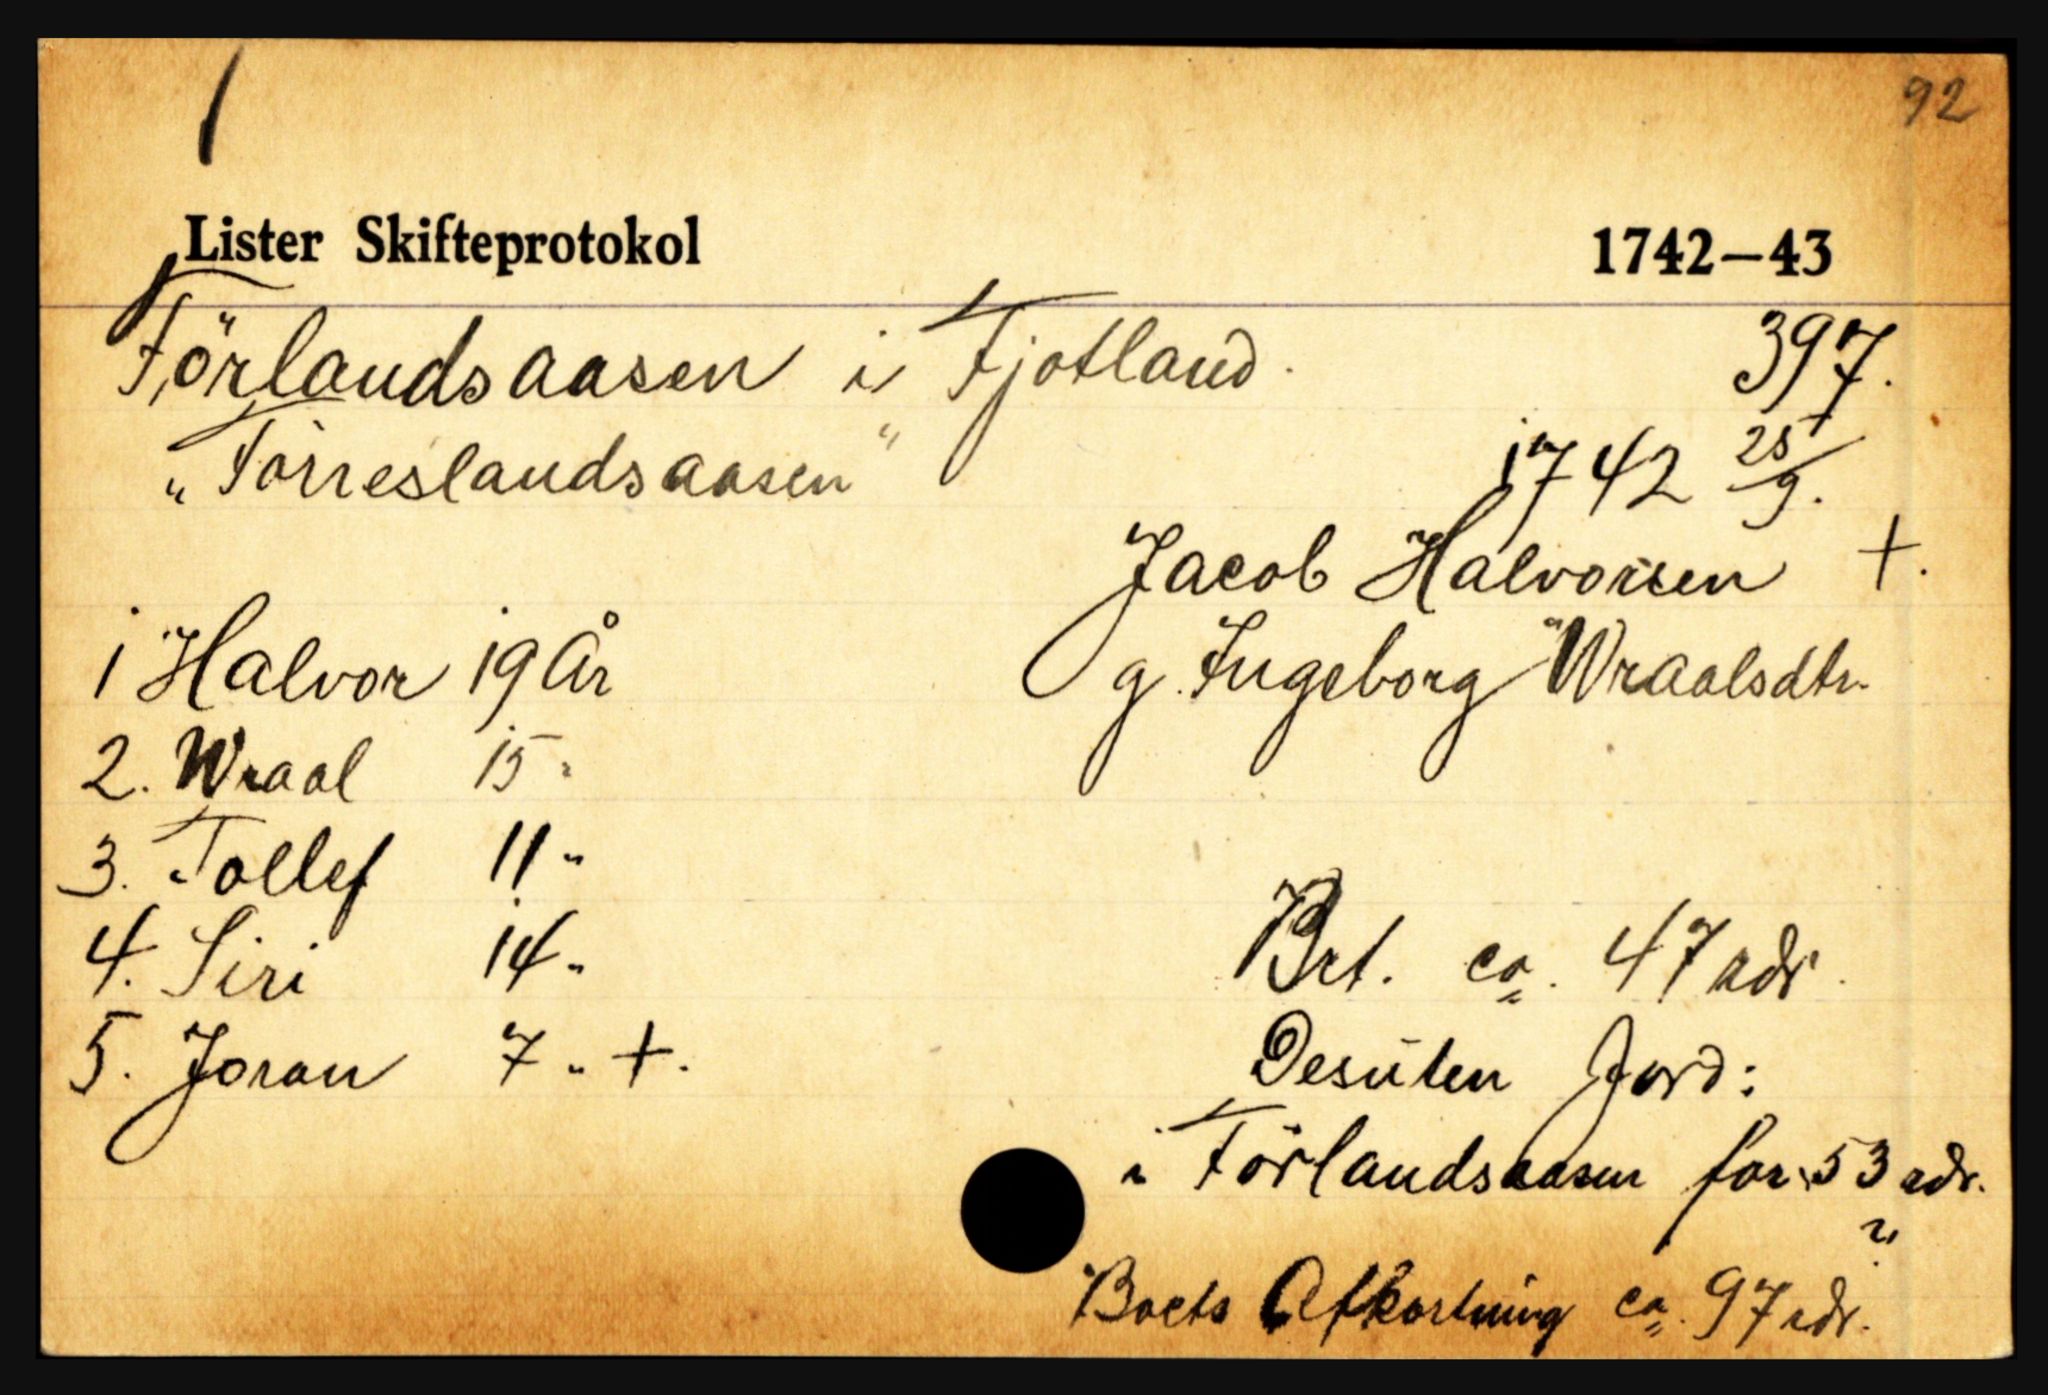 92
Lister Skifteprotokol 1742–43
Förlandsaasen i Fjotland. 397.
„Förreslandsaasen“ 1742 25/9.
Jacob Halvorsen +.
g. Ingeborg Wraalsdtr.
1 Halvor 19 År
2. Wraal 15 "
3. Tollef 11 "
4. Siri 14 "
5. Joran 7 " +.
Brt. ca. 47 rdr.
Desuten Jord:
i Förlandsaasen for 53 rdr.
Boets Afkortning ca. 97 rdr.